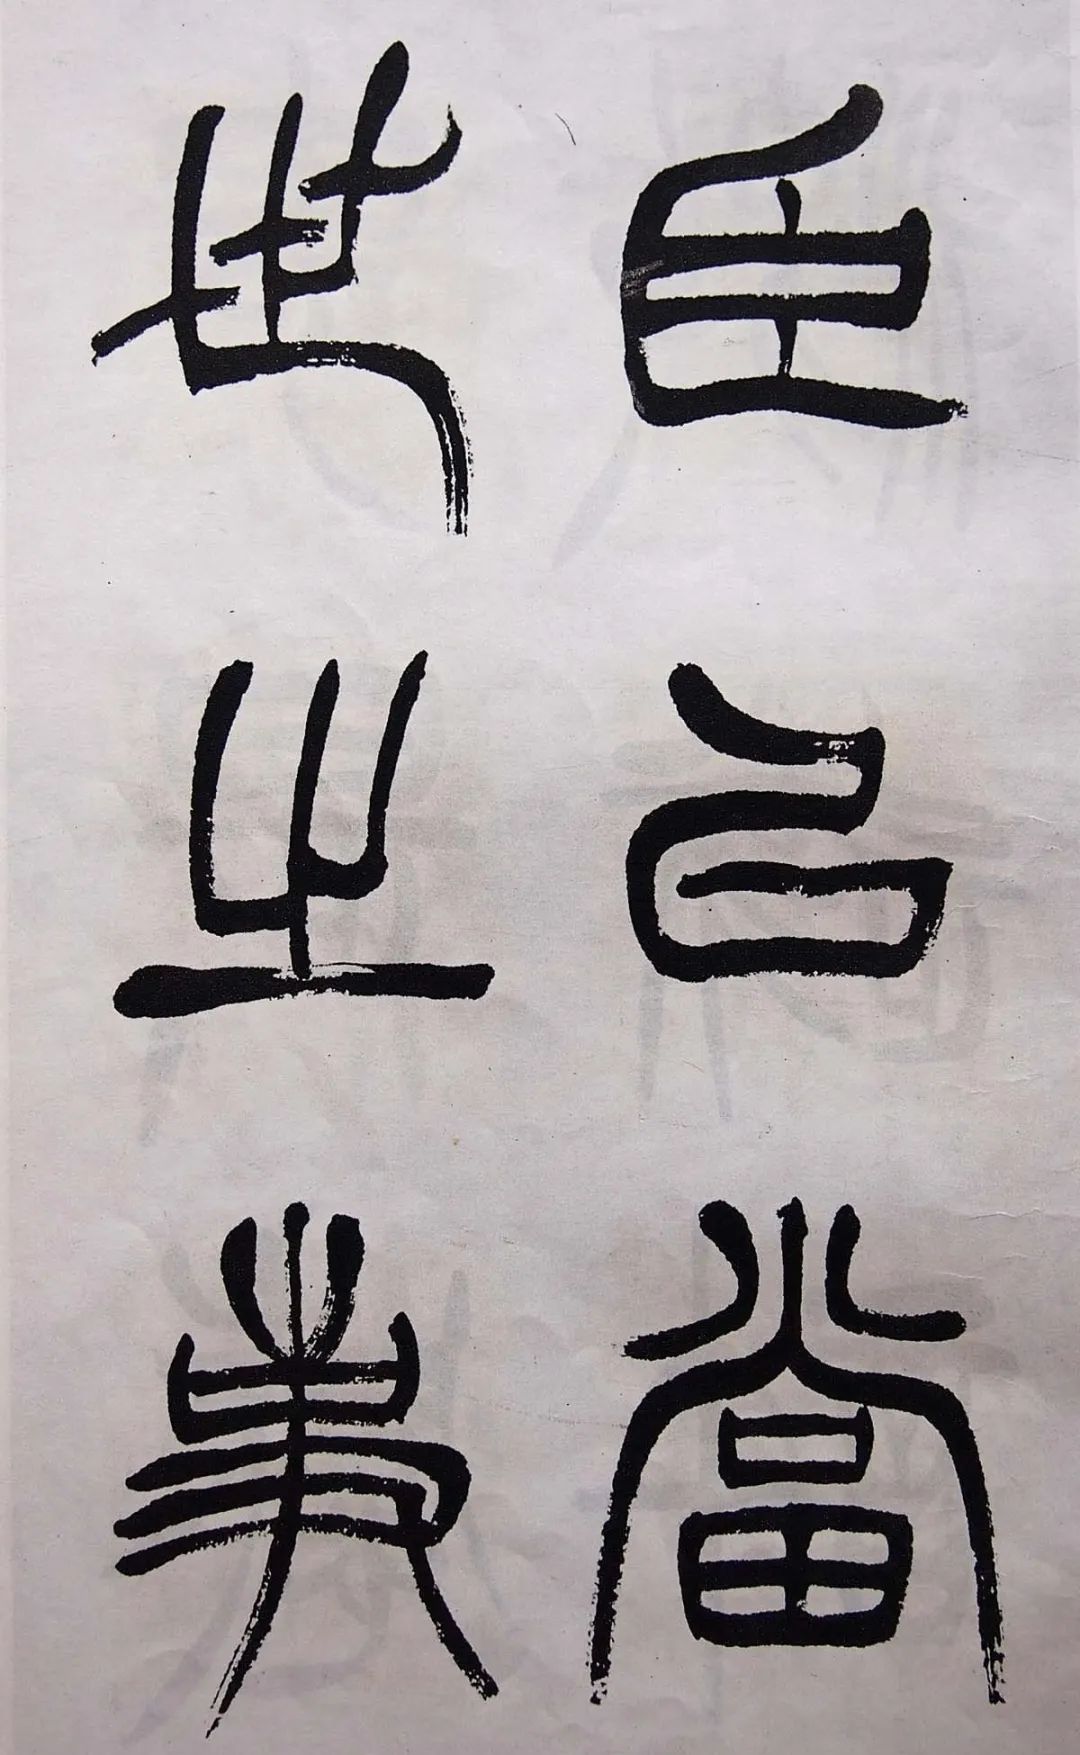 臣以當
世之事